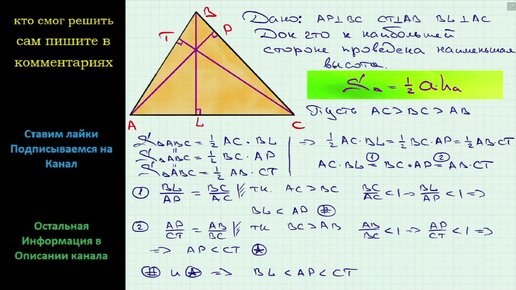 кто смог решить
сам пишите в
комментариях
Ставим лайки
Подписываемся на
Канал
Остальная
Информация в
Описании канала
B
T
P
A
L
C
Дано: AP⊥BC CT⊥AB BL⊥AC
Док что к наибольшей
стороне проведена наименьшая
высота.
S△ = 1/2 a ha
Пусть AC>BC>AB
S△ABC = 1/2 AC · BL
S△ABC = 1/2 BC · AP
S△ABC = 1/2 AB · CT
⇒ 1/2 AC·BL = 1/2 BC·AP = 1/2 AB·CT
AC·BL ①= BC·AP ②= AB·CT
① BL/AP = BC/AC тк AC>BC BC/AC <1 ⇒ BL/AP <1 ⇒
BL < AP
② AP/CT = AB/BC тк BC>AB AB/BC <1 ⇒ AP/CT <1 ⇒
⇒ AP < CT
и ⇒ BL < AP < CT